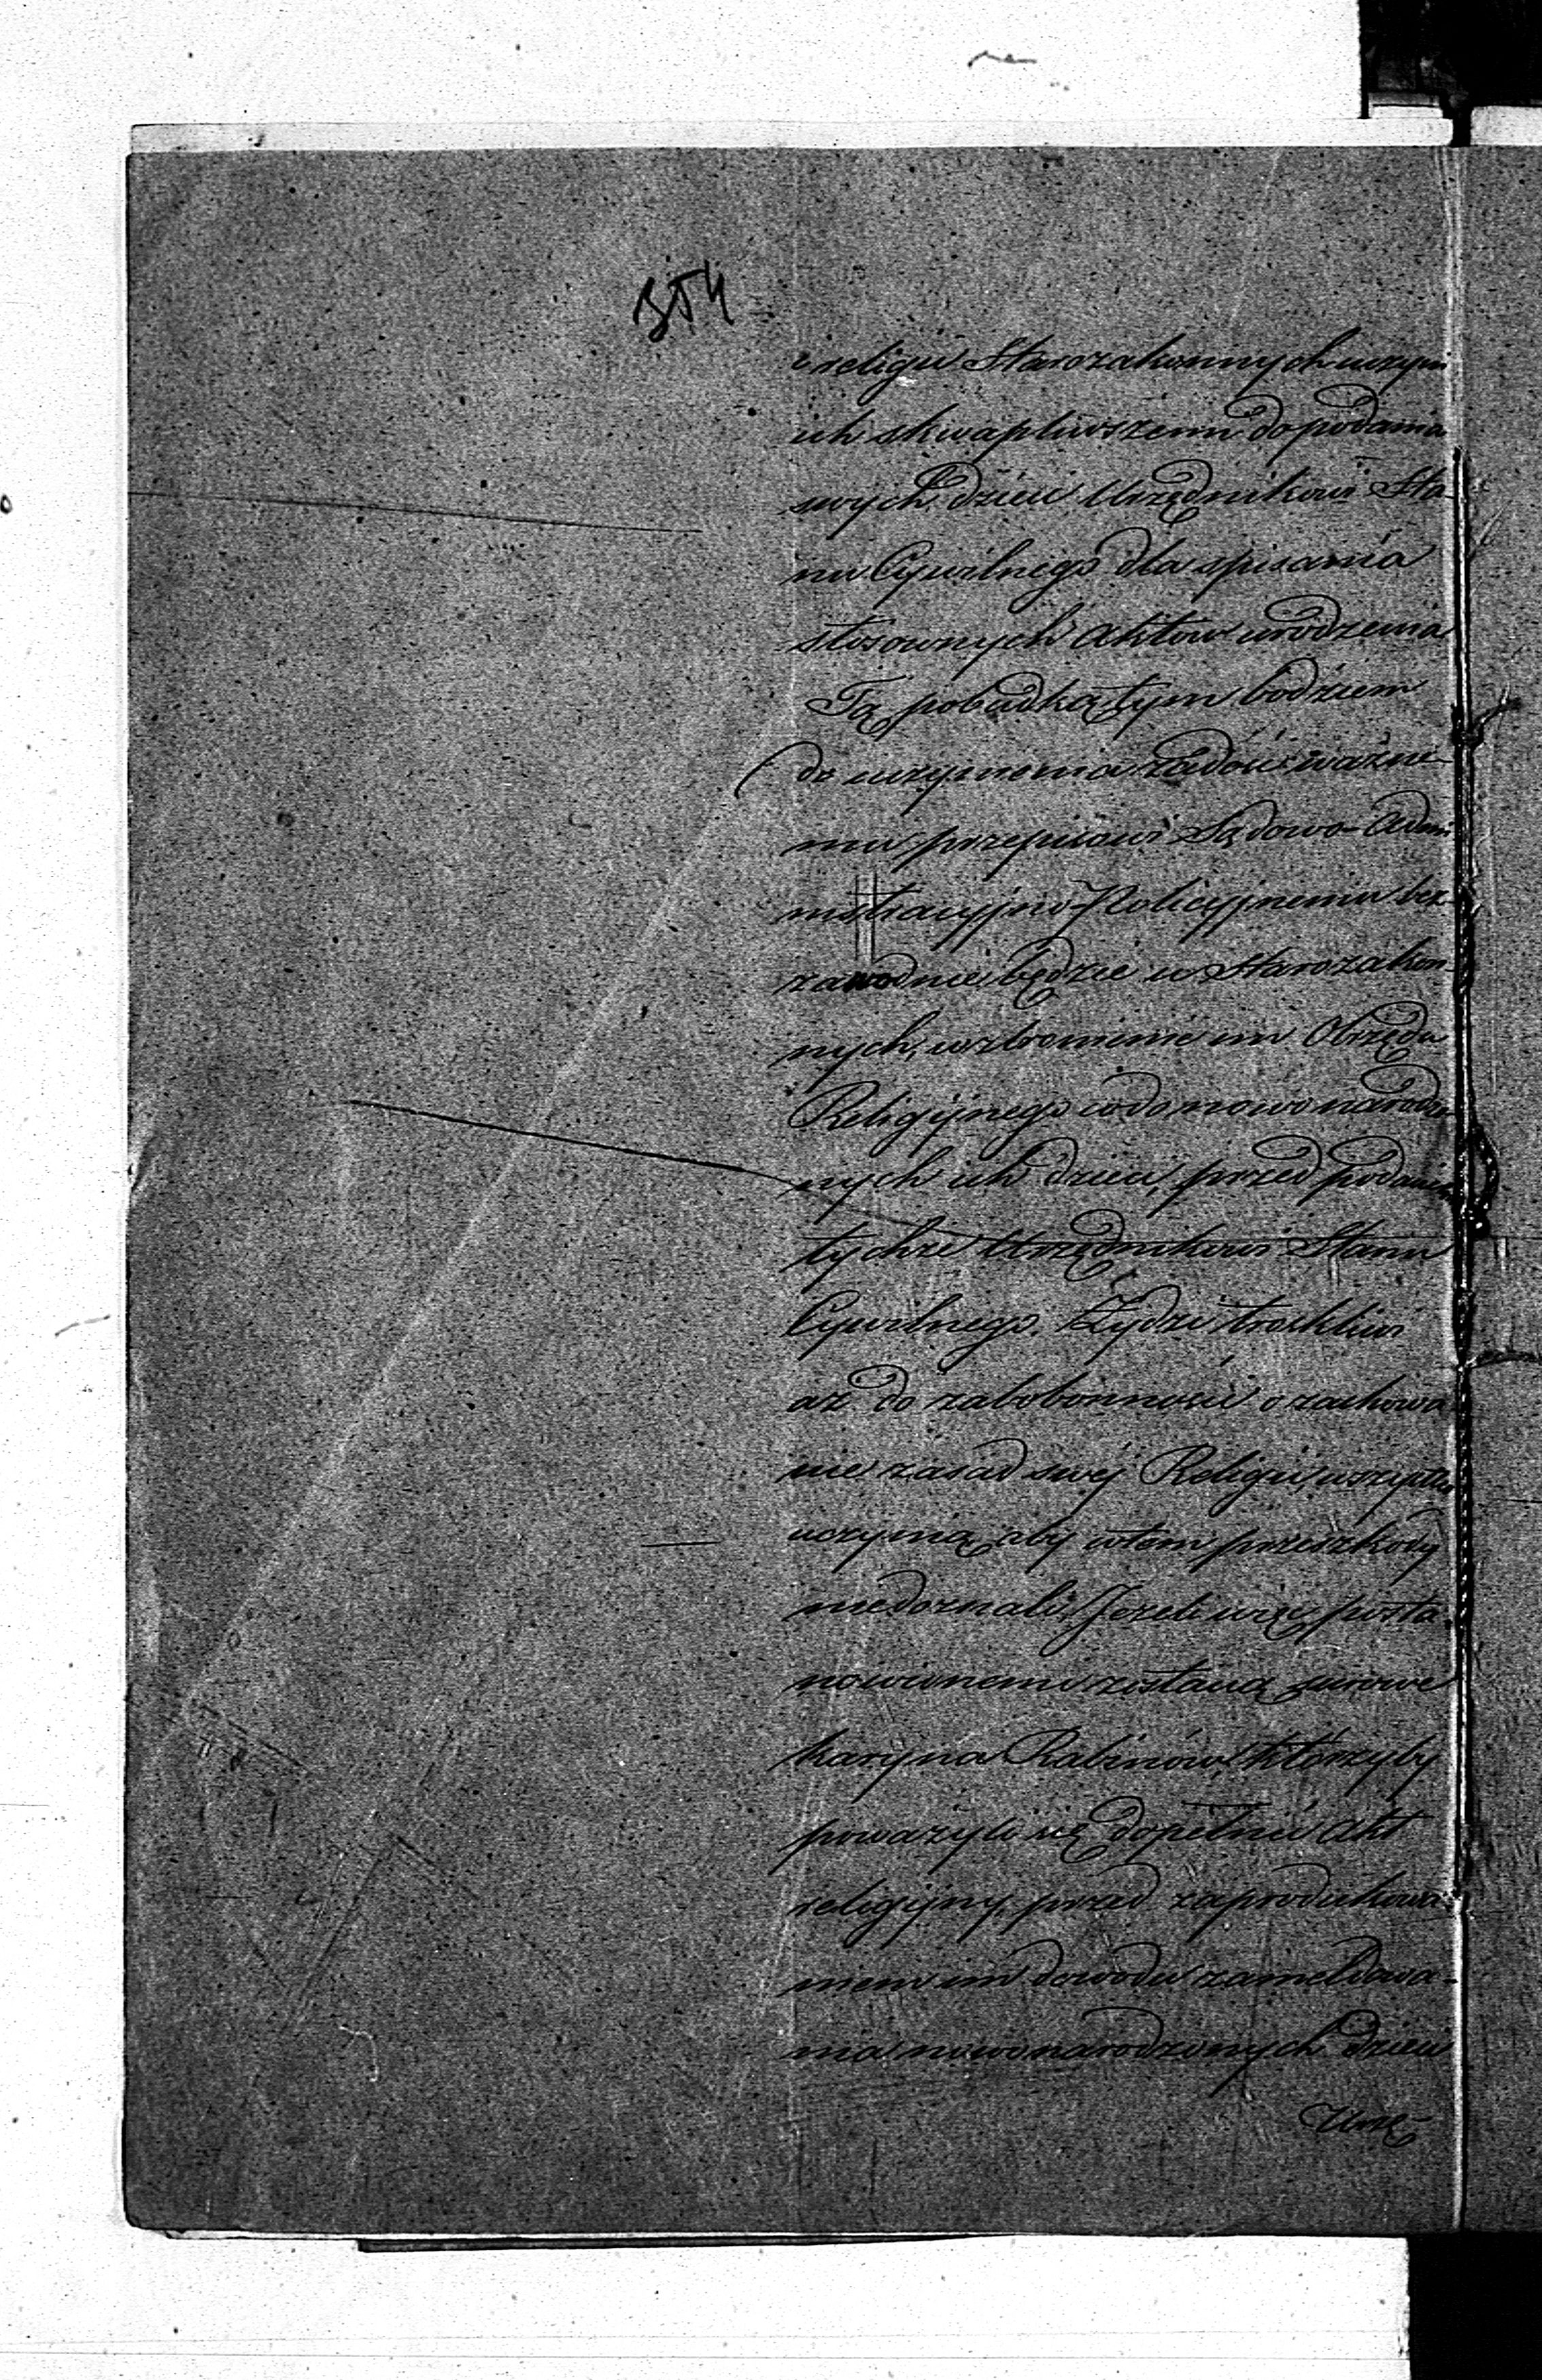 354
z religii Starozakonnych uczyni
ich skwapliwszemi do podania
swych dzieci Urzędnikowi Sta-
nu Cywilnego dla spisania
stosownych Aktow urodzenia
Tą pobudką, tym bodźcem
do uczynienia zadość ważne-
mu przepisowi Sądowo-Admi
nistracyjno-Policyjnemu bez-
zawodnie będzie u Starozakon-
nych, wzbronienie im Obrzędu
Religijnego co do nowo narodzo
nych ich dzieci, przed podaniem
tychże Urzędnikowi Stanu
Cywilnego. Żydzi troskliwi
aż do zabobonności o zachowa
nie zasad swej Religii, wszystko
uczynią, aby w tem przeszkody
niedoznali. Jeżeli więc posta-
nowionemi zostaną surowe
kary na Rabinów, którzyby
poważyli się dopełnić Akt
religijny, przed zaprodukowa-
niem im dowodu zameldowa-
nia nowonarodzonych dzieci
Urzę-